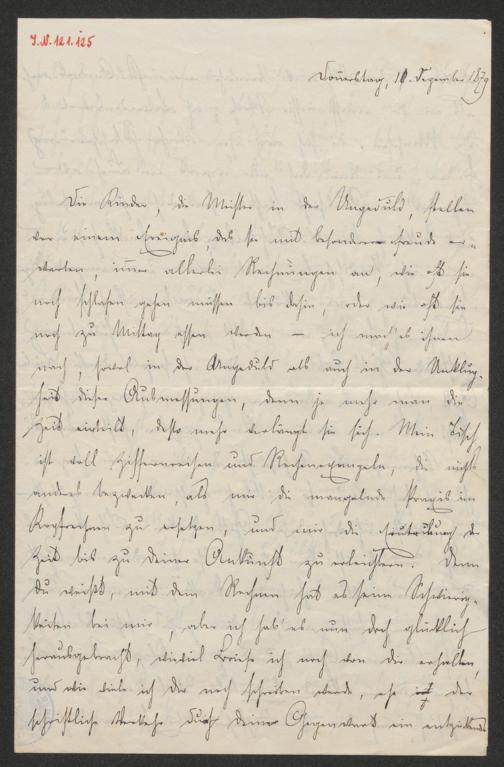 I.N. 121.125
Donnerstag, 18. Dezember 1879
Die Kinder, die Meister in der Ungeduld, stellen
vor einem Ereignis, das sie mit besonderer Freude er-
warten, immer allerlei Rechnungen an, wie oft sie
noch schlafen gehen müssen bis dahin, oder wie oft sie
noch zu Mittag essen werden — ich mach' es ihnen
nach, sowol in der Ungeduld als auch in der Unklug-
heit dieser Ausmessungen, denn je mehr man die
Zeit einteilt, desto mehr verlängt sie sich. Mein Tisch
ist voll Ziffernreihen und Rechenexempeln, die nichts
anderes bezwecken, als mir die mangelnde Praxis im
Kopfrechnen zu ersetzen, und mir die Einteilung der
Zeit bis zu Deiner Ankunft zu erleichtern. Denn
Du weißt, mit dem Rechnen hat es seine Schwierig-
keiten bei mir, aber ich hab' es nun doch glücklich
herausgebracht, wieviel Briefe ich noch von Dir erhalten,
und wie viele ich Dir noch schreiben werde, ehe der
schriftliche Verkehr durch Deine Gegenwart ein entzückendes